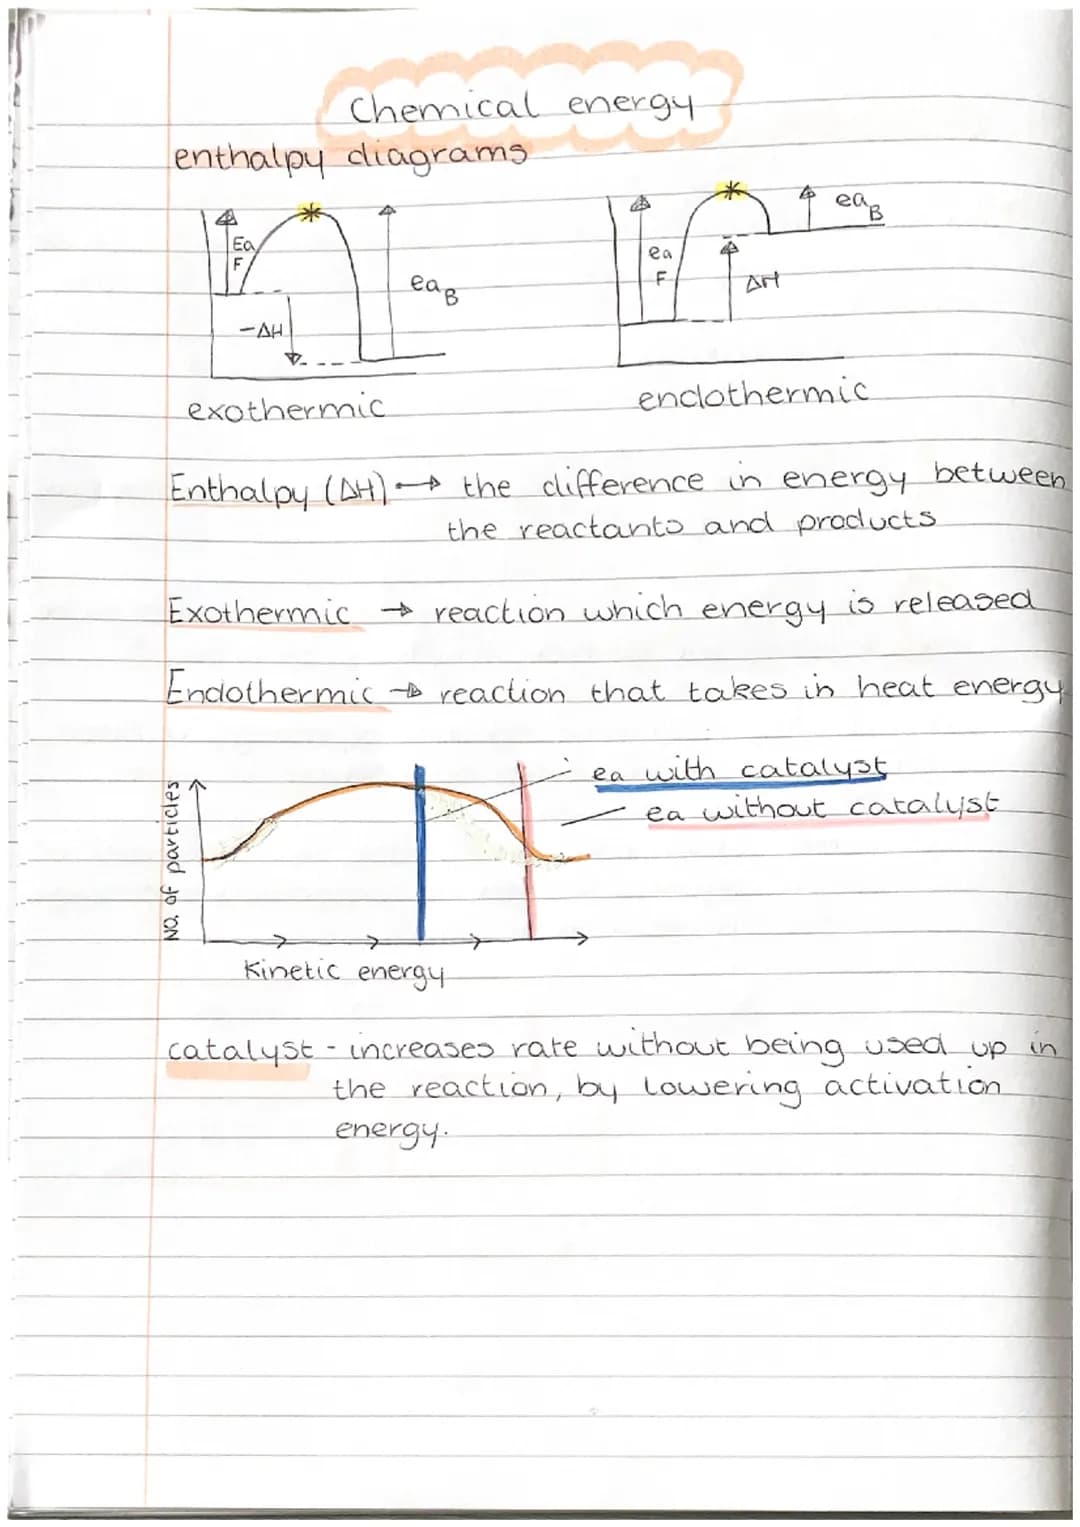 Chemical energy
enthalpy diagrams
Ea
F
-ΔH
ea B
exothermic
ea
F
ΔH
ea B
endothermic
Enthalpy (ΔH) → the difference in energy between
the reactants and products
Exothermic → reaction which energy is released
Endothermic → reaction that takes in heat energy
No. of particles
Kinetic energy
ea with catalyst
ea without catalyst
catalyst - increases rate without being used up in
the reaction, by lowering activation
energy.